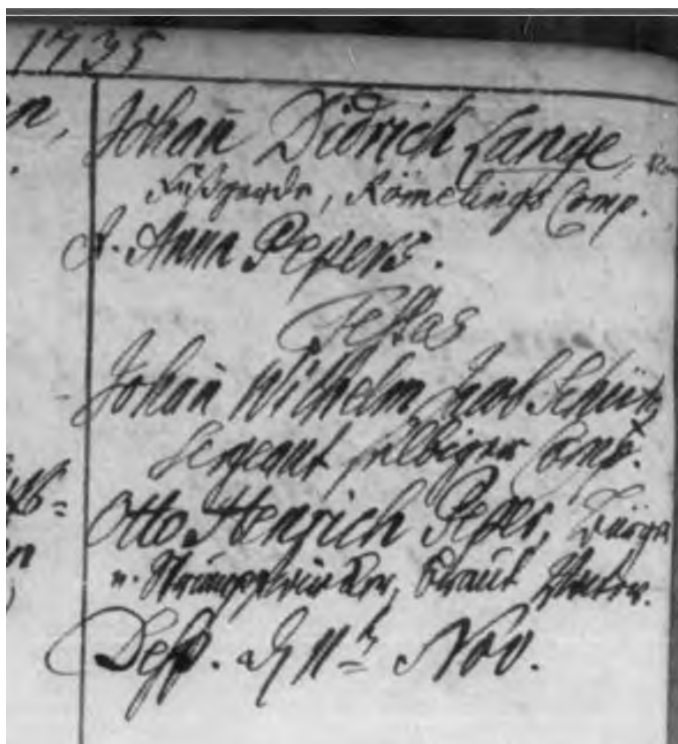 1735
Johañ Didrich Lange,
Fußgarde, Römelings Comp.
A. Anna Pepers.
Testes
Johañ Wilhelm Schütz
Sergeant selbiger Comp.
Otto Henrich Peper, Bürger
u. Strumpfwircker, Braut Vater.
Desp. d 11t Nov.